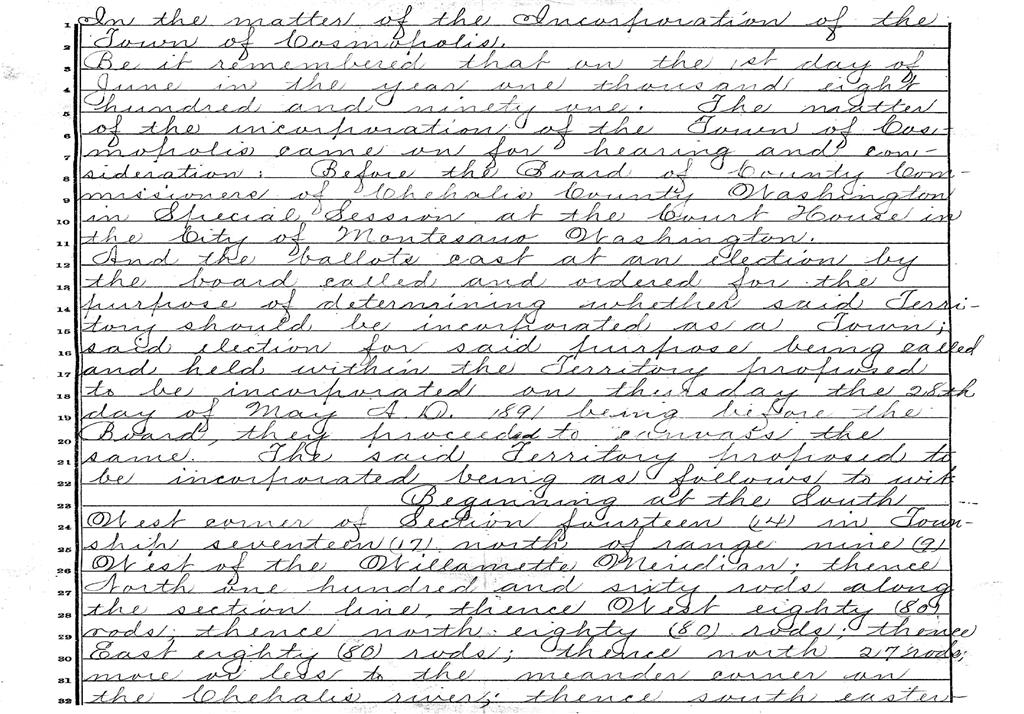 In the matter of the Incorporation of the
1 Town of Cosmopolis.
2 Be it remembered that on the 1st day of
3 June in the year one thousand eight
4 hundred and ninety one. The matter
5 of the incorporation of the Town of Cos-
6 mopolis came on for hearing and con-
7 sideration: Before the Board of County Com-
8 missioners of Chehalis County Washington
9 in Special Session at the Court House in
10 the City of Montesano Washington.
11 And the ballots cast at an election by
12 the board called and ordered for the
13 purpose of determining whether said Terri-
14 tory should be incorporated as a Town;
15 said election for said purpose being called
16 and held within the Territory proposed
17 to be incorporated on thursday the 28th
18 day of May A.D. 1891 being before the
19 Board, they proceeded to canvass the
20 same. The said Territory proposed to
21 be incorporated being as follows to wit
22 Beginning at the South
23 West corner of Section fourteen (14) in Town-
24 ship seventeen (17) north of range nine (9)
25 West of the Willamette Meridian; thence
26 North one hundred and sixty rods along
27 the section line thence West eighty (80)
28 rods; thence north eighty (80) rods; thence
29 East eighty (80) rods; thence north 27 rods;
30 more or less to the meander corner on
31 the Chehalis river; thence south easter-
32